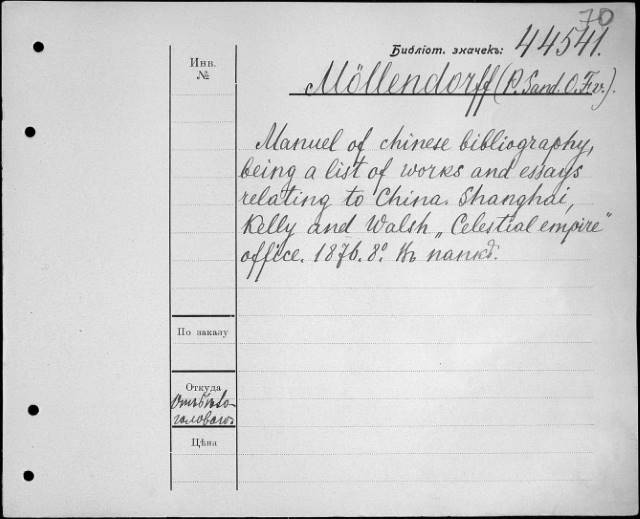 70
Библіот. значекъ: 44541.
Инв.
№
Möllendorff (P. G. and O. F. v.).
Manuel of chinese bibliography,
being a list of works and essays
relating to China. Shanghai,
Kelly and Walsh „Celestial empire"
office. 1876. 8º. Въ папкѣ.
По заказу
Откуда
Отъ Бѣло-
головаго
Цѣна